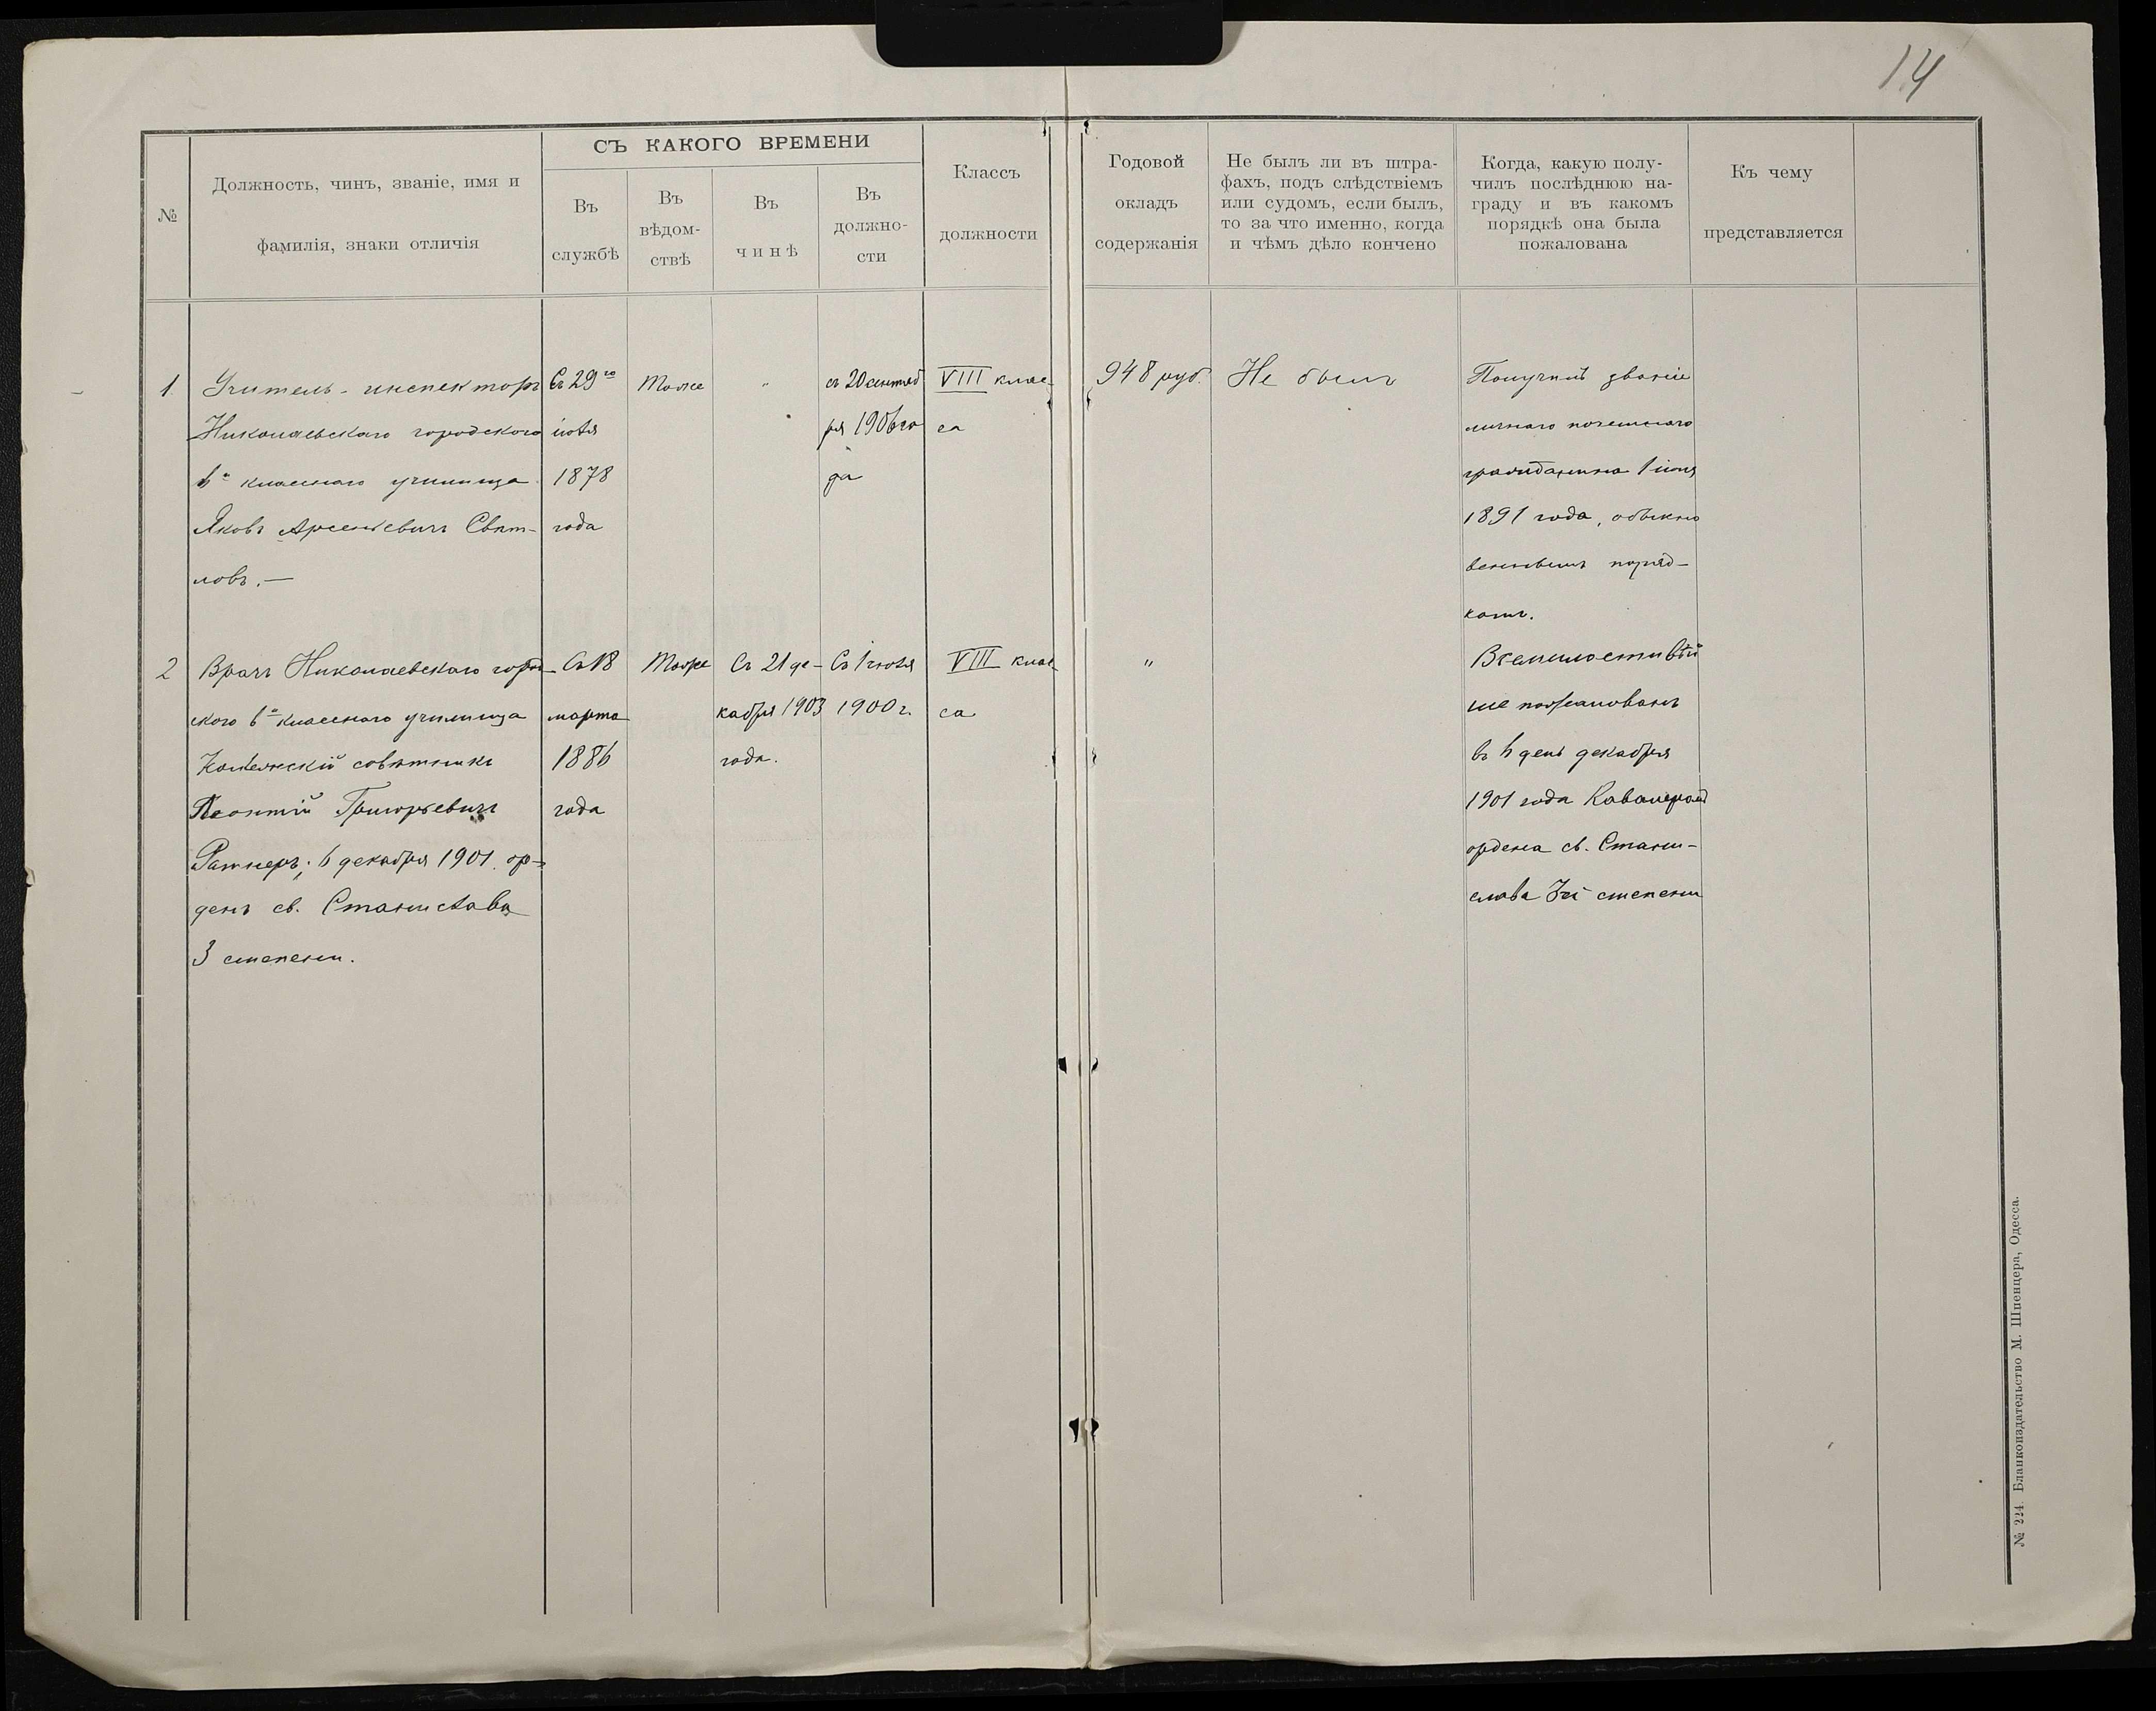 14
№
Должность, чинъ, званіе, имя и
фамилія, знаки отличія
СЪ КАКОГО ВРЕМЕНИ
Въ
службѣ
Въ
вѣдом-
ствѣ
Въ
чинѣ
Въ
должно-
сти
Классъ
должности
Годовой
окладъ
содержанія
Не былъ ли въ штра-
фахъ, подъ слѣдствіемъ
или судомъ, если былъ,
то за что именно, когда
и чѣмъ дѣло кончено
Когда, какую полу-
чилъ послѣднюю на-
граду и въ какомъ
порядкѣ она была
пожалована
Къ чему
представляется
1
Учитель-инспекторъ
Николаевскаго городского
6º класснаго училища
Яковъ Арсеньевичъ Свѣт-
ловъ.—
Съ 29го
іюля
1878
года
Тоже
"
съ 20 сентяб
ря 1906 го
да
VIII клас-
са
948 руб.
Не былъ
Получилъ званіе
личнаго почетнаго
гражданина 1 іюня
1891 года, обыкно
веннымъ поряд-
комъ.
2
Врачъ Николаевскаго город-
ского 6º класснаго училища
Коллежскій совѣтникъ
Леонтій Григорьевичъ
Ратнеръ; 6 декабря 1901. ор-
денъ св. Станислава
3 степени.
Съ 18
марта
1886
года
Тоже
Съ 21 де-
кабря 1903
года.
Съ 1 іюля
1900 г.
VIII клас-
са
"
Всемилостивѣй
ше пожалованъ
въ 6 день декабря
1901 года Кавалеромъ
ордена св. Стани-
слава 3й степени
№ 224. Бланкоиздательство М. Шпенцера, Одесса.